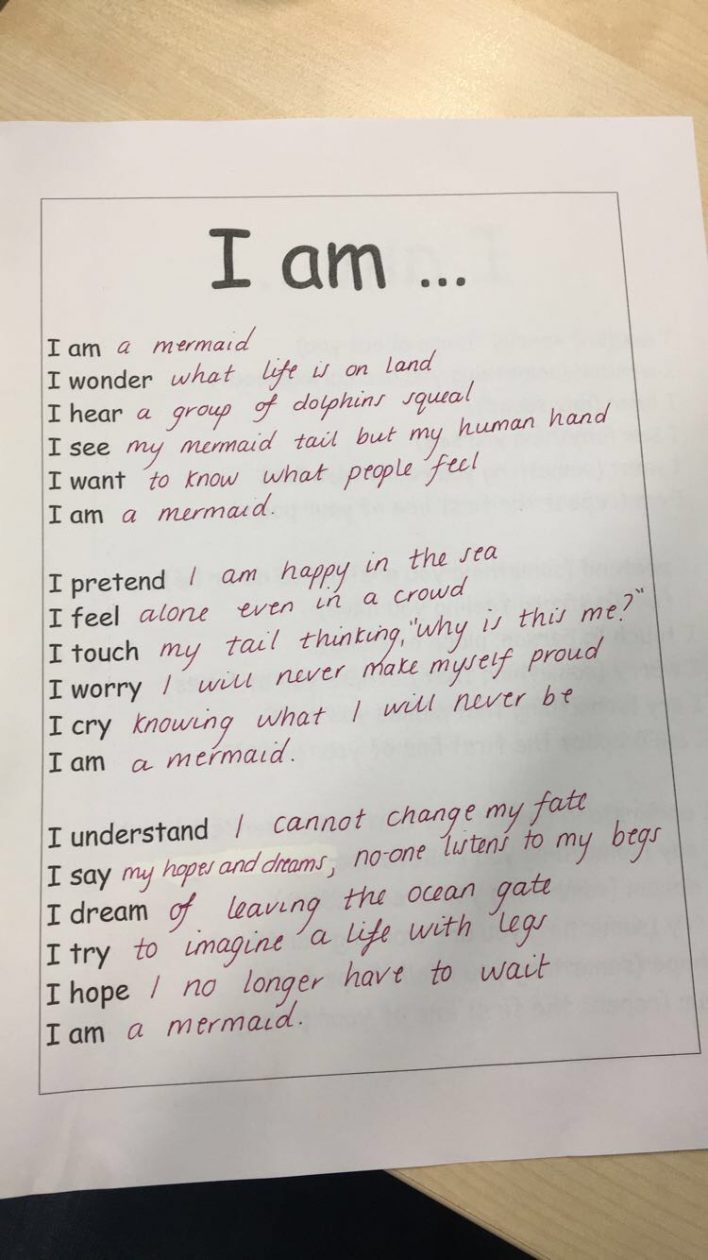 I am ...
I am a mermaid
I wonder what life is on land
I hear a group of dolphins squeal
I see my mermaid tail but my human hand
I want to know what people feel
I am a mermaid.
I pretend I am happy in the sea
I feel alone even in a crowd
I touch my tail thinking, "why is this me?"
I worry I will never make myself proud
I cry knowing what I will never be
I am a mermaid.
I understand I cannot change my fate
I say my hopes and dreams, no-one listens to my begs
I dream of leaving the ocean gate
I try to imagine a life with legs
I hope I no longer have to wait
I am a mermaid.